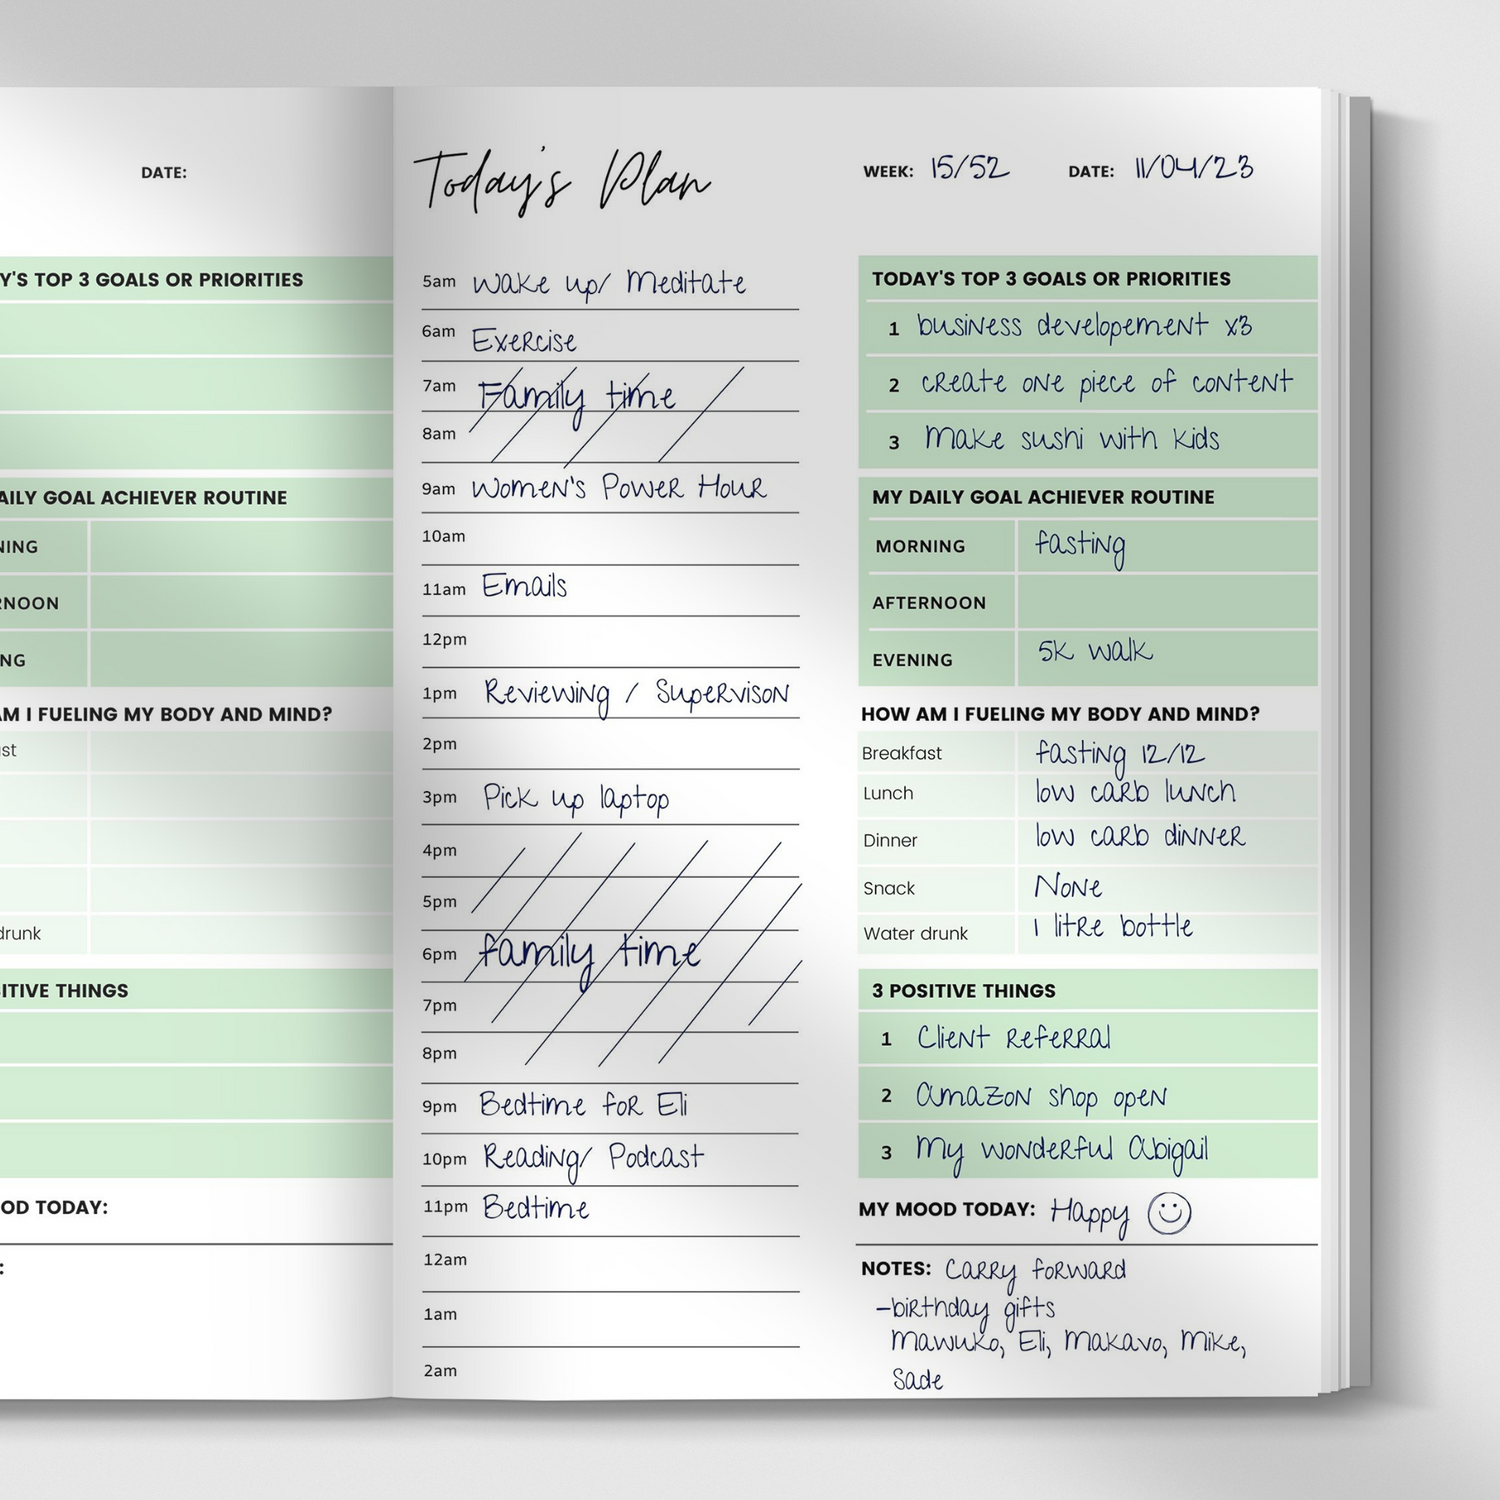 DATE:
Y'S TOP 3 GOALS OR PRIORITIES
AILY GOAL ACHIEVER ROUTINE
NING
RNOON
NG
AM I FUELING MY BODY AND MIND?
st
drunk
SITIVE THINGS
OD TODAY:
:
Today's Plan
WEEK: 15/52 DATE: 11/04/23
5am Wake up/ Meditate
6am Exercise
7am Family time
8am
9am Women's Power Hour
10am
11am Emails
12pm
1pm Reviewing / Supervison
2pm
3pm Pick up laptop
4pm
5pm
6pm family time
7pm
8pm
9pm Bedtime for Eli
10pm Reading/ Podcast
11pm Bedtime
12am
1am
2am
TODAY'S TOP 3 GOALS OR PRIORITIES
1 business developement x3
2 create one piece of content
3 Make sushi with kids
MY DAILY GOAL ACHIEVER ROUTINE
MORNING fasting
AFTERNOON
EVENING 5k walk
HOW AM I FUELING MY BODY AND MIND?
Breakfast fasting 12/12
Lunch low carb lunch
Dinner low carb dinner
Snack None
Water drunk 1 litre bottle
3 POSITIVE THINGS
1 Client referral
2 Amazon shop open
3 My wonderful Abigail
MY MOOD TODAY: Happy
NOTES: Carry forward
-birthday gifts
Mawuko, Eli, Makavo, Mike,
Sade